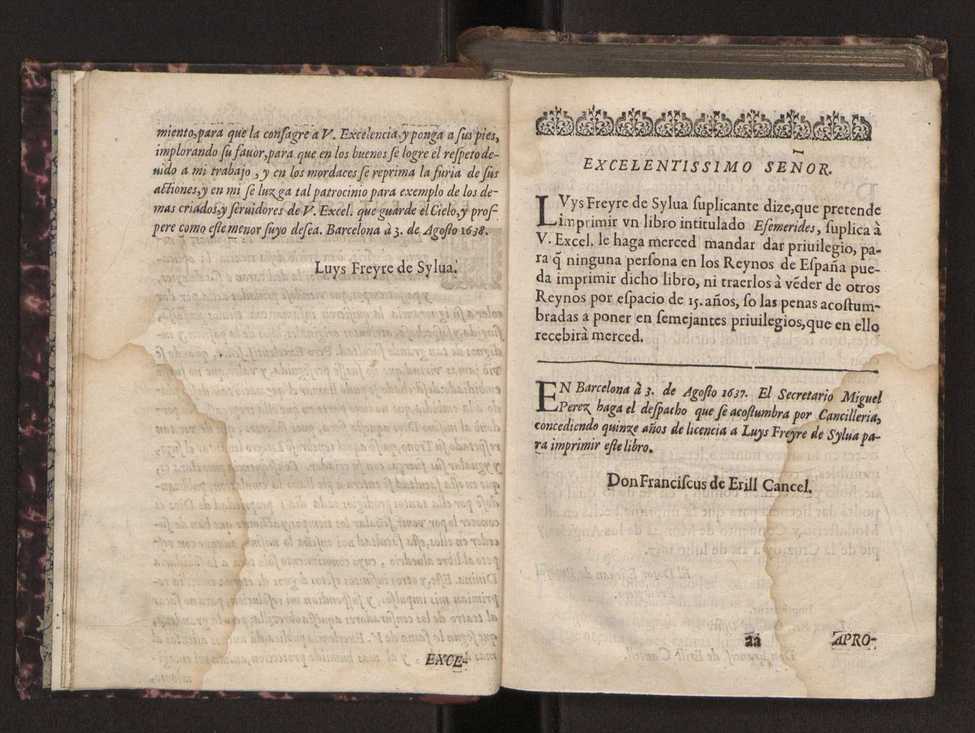 miento,para que la consagre a V. Excelencia,y ponga a sus pies,
implorando su fauor,para que en los buenos se logre el respeto de-
uido a mi trabajo, y en los mordaces se reprima la furia de sus
actiones,y en mi se luzga tal patrocinio para exemplo de los de-
mas criados,y seruidores de V. Excel. que guarde el Cielo,y pros-
pere como este menor suyo desea. Barcelona à 3. de Agosto 1638.
Luys Freyre de Sylua.
EXCE-
EXCELENTISSIMO SEÑOR.
LVys Freyre de Sylua suplicante dize,que pretende
imprimir vn libro intitulado Efemerides, suplica à
V. Excel. le haga merced mandar dar priuilegio, pa-
ra q̃ ninguna persona en los Reynos de España pue-
da imprimir dicho libro, ni traerlos à vẽder de otros
Reynos por espacio de 15. años, so las penas acostum-
bradas a poner en semejantes priuilegios,que en ello
recebirà merced.
EN Barcelona à 3. de Agosto 1637. El Secretario Miguel
Perez haga el despacho que se acostumbra por Cancilleria,
concediendo quinze años de licencia a Luys Freyre de Sylua pa-
ra imprimir este libro.
Don Franciscus de Erill Cancel.
aa APRO-